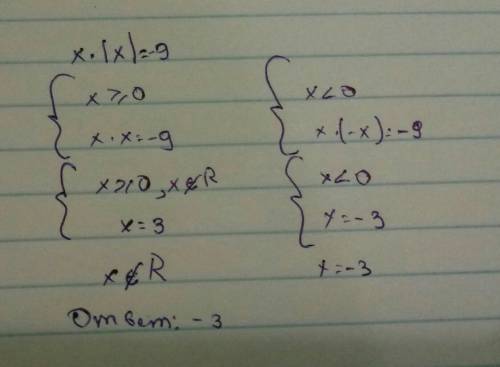 x·|x|=-9
{ x⩾0
x·x=-9
{ x⩾0, x∉R
x=3
x∉R
{ x<0
x·(-x)=-9
{ x<0
x=-3
x=-3
Ответ: -3